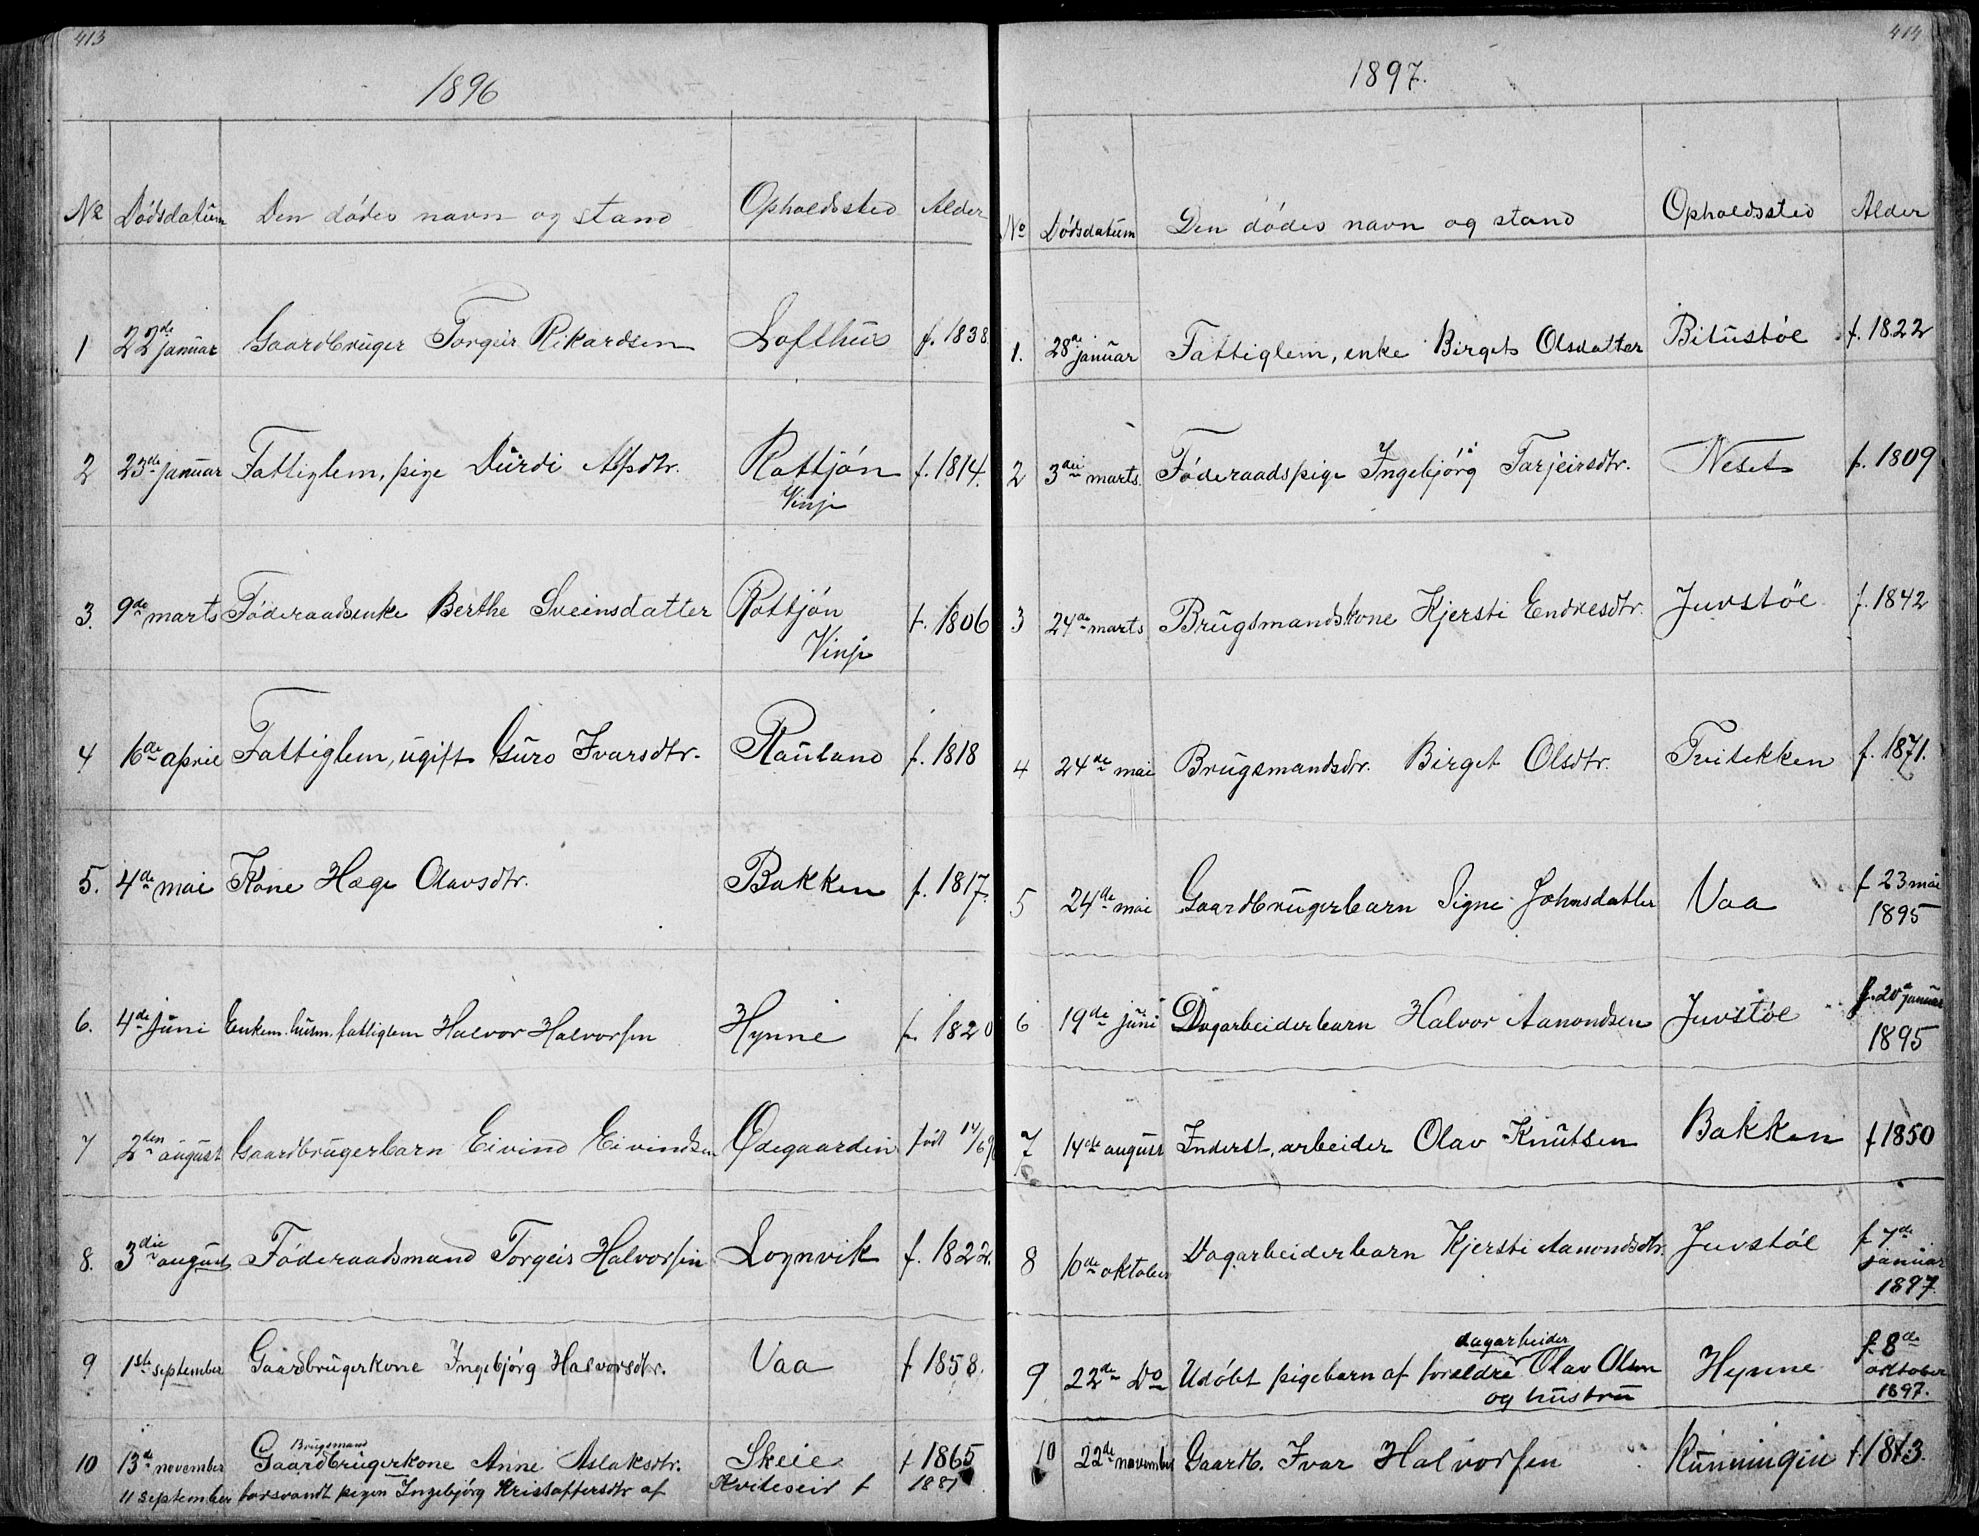 413
1896
No Dødsdatum Den dødes navn og stand Opholdssted Alder
1 22de januar Gaardbruger Torgeir Rikardsen Lofthus f. 1838
2 23de januar Fattiglem, pige Durdi Alfsdtr. Rottjøn f. 1814.
Vinje
3. 9de marts Føderaadsenke Berthe Sveinsdatter Rottjøn f. 1806
Vinje
4 16de april Fattiglem, ugift Guro Ivarsdtr. Rauland f. 1818
5. 4de mai Kone Hæge Olavsdtr. Bakken f. 1817.
6. 4de juni Enkem. husm. fattiglem Halvor Halvorsen Hynne f. 1820
7 2den august Gaardbrugerbarn Eivind Eivindsen Ødegaarden født 14/6
8. 3die august Føderaadsmand Torgeir Halvorsen Lognvik f. 1822.
9 1ste september Gaardbrugerkone Ingebjørg Halvorsdtr. Vaa f 1858.
Brugsmand
10 13de november Gaardbrugerkone Anne Aslaksdtr. Skeie f 1865
11 september forsvandt pigen Ingebjørg Kristoffersdtr af Kviteseid f 1881
414
1897.
No Dødsdatum Den dødes navn og stand Opholdssted Alder
1. 28de januar Fattiglem, enke Birget Olsdatter Bitustøl f. 1822
2 3die marts. Føderaadspige Ingebjørg Tarjeirsdtr. Neset f. 1809
3 24de marts Brugsmandskone Kjersti Endresdtr. Juvstøl f. 1842
4 24de mai Brugsmandsdtr. Birget Olsdtr. Tveitekken f. 1871.
5 24de mai Gaardbrugerbarn Signe Johnsdatter Vaa f 23 mai
1895
6 19de juni Dagarbeiderbarn Halvor Aamondsen Juvstøl f. 20de januar
1895
7 14de august Inderst, arbeider Olav Knutsen Bakken f 1850
8 6de oktober Dagarbeiderbarn Kjersti Aamondsdtr. Juvstøl f 7de
januar
1897
dagarbeider
9 22de Do Udøbt pigebarn af forældre Olav Olsen Hynne f. 8de
og hustru oktober
1897.
10 22de november Gaardb. Ivar Halvorsen Kunningen f 1813.